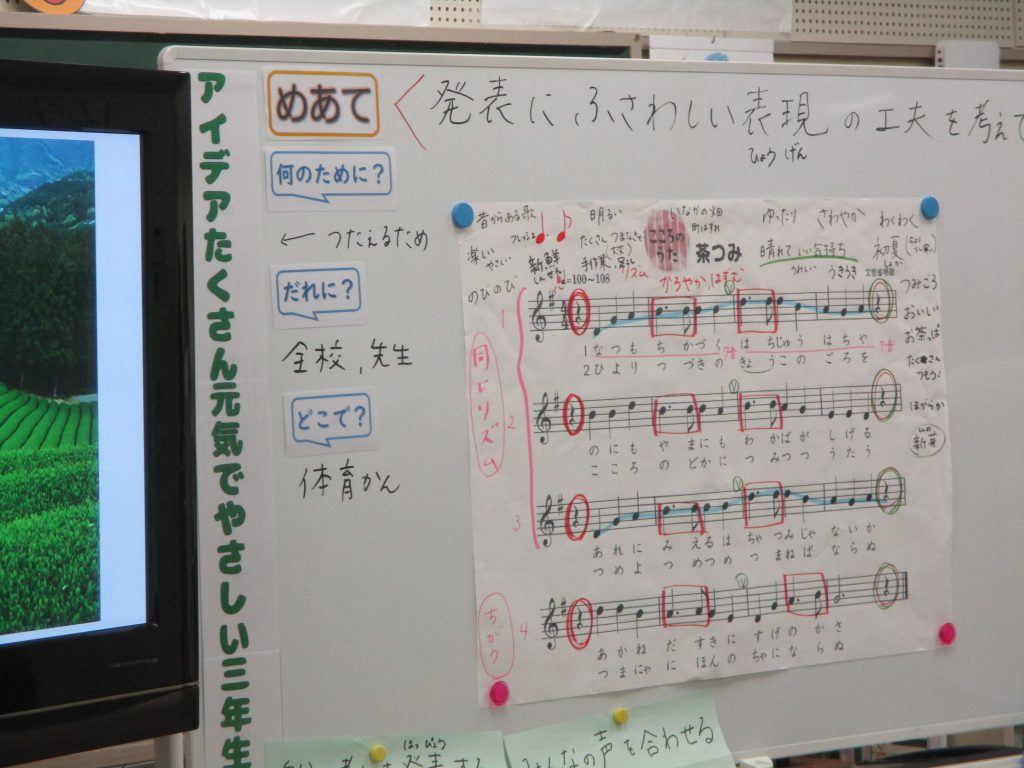 アイデアたくさん元気でやさしい三年生
めあて
発表にふさわしい表現の工夫を考えて
ひょうげん
何のために?
← つたえるため
だれに?
全校,先生
どこで?
体育かん
昔からある歌
フレッシュ
楽しい
やさしい
のびのび
新鮮
しんせん
明るい
たくさん
手作業
リズム
かろやか はずむ
こころのうた
茶つみ
いなかの畑
ゆったり
さわやか
わくわく
晴れて いい気持ち
うれしい
うきうき
初夏
文部省唱歌
つみごろ
おいしい
お茶っぱ
たくさん
つもう!
ほがらか
新芽
=100~108
4
4
1
同じリズム
1なつも ちかづく はちじゅう はちや
2ひより つづきの きょうこの ごろを
2
のにも やまにも わかばが しげる
こころ のどかに つみつつ うたう
3
あれに みえるは ちゃつみじゃ ないか
つめよ つめつめ つまねば ならぬ
ちがう
4
あかね だすきに すげの かさ
つまにゃ にほんの ちゃに ならぬ
はっぴょう
みんなの声を合わせる